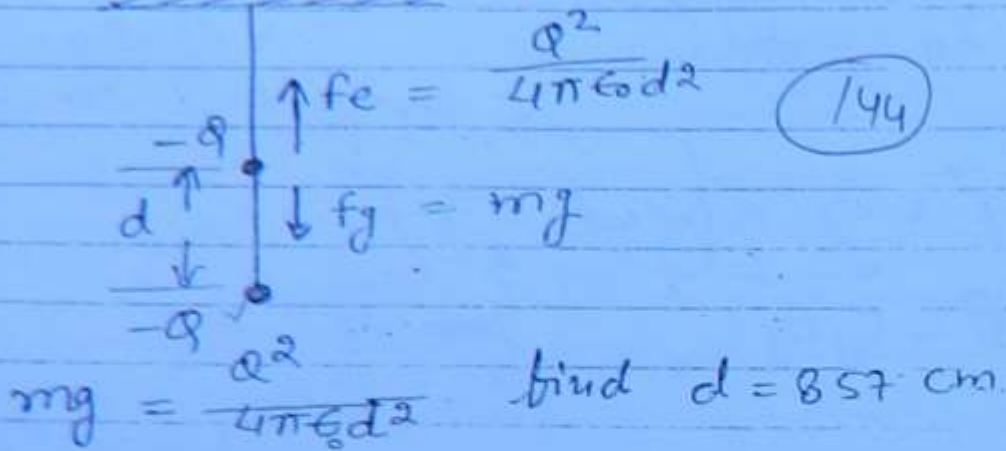 ↑ fe = Q² / 4π ε₀ d²
144
-Q
d
↓ fg = mg
-Q
mg = Q² / 4π ε₀ d² find d = 857 cm